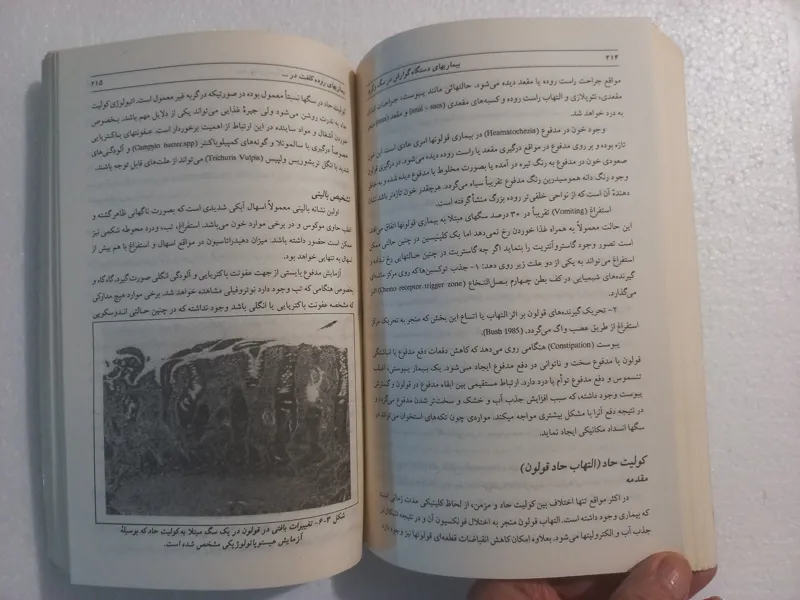 ۲۱۴
بیماریهای دستگاه گوارش در سگ و گربه
مواقع جراحت راست روده یا مقعد دیده می‌شود. حالتهائی مانند یبوست، جراحات غدد
مقعدی، نئوپلازی و التهاب راست روده و کیسه‌های مقعدی (anal - sacs) و مقعد (anus) منجر
به درد خواهد شد.
وجود خون در مدفوع (Heamatochezia) در بیماری قولونها امری عادی است. این خون
تازه بوده و بر روی مدفوع در مواقع درگیری مقعد یا راست روده دیده می‌شود. در درگیری قولون
صعودی خون در مدفوع به رنگ تیره در آمده یا بصورت مخلوط با مدفوع دیده شده و به خاطر
وجود رنگ دانه هموسیدرین رنگ مدفوع تقریباً سیاه می‌گردد. هرچقدر خون تازه‌تر باشد نشان
دهندهٔ آن است که از نواحی خلفی‌تر روده بزرگ منشأ گرفته است.
استفراغ (Vomiting) تقریباً در ۳۰ درصد سگهای مبتلا به بیماری قولونها اتفاق می‌افتد.
این حالت معمولاً به همراه غذا خوردن رخ نمی‌دهد اما یک کلینیسین در چنین حالتی ممکن
است تصور وجود گاستروآنتریت را بنماید اگر چه گاستریت در چنین حالتهایی رخ نداده و
استفراغ می‌تواند به یکی از دو علت زیر روی دهد: ۱- جذب توکسین‌ها که روی مرکز ماشه‌ای
گیرنده‌های شیمیایی در کف بطن چهارم بصل‌النخاع (Chemo receptor trigger zone) اثر
می‌گذارد.
۲- تحریک گیرنده‌های قولون بر اثر التهاب یا اتساع این بخش که منجر به تحریک مرکز
استفراغ از طریق عصب واگ می‌گردد. (Bush 1985).
یبوست (Constipation) هنگامی روی می‌دهد که کاهش دفعات دفع مدفوع یا انباشتگی
قولون با مدفوع سخت و ناتوانی در دفع مدفوع ایجاد می‌شود. یک بیمار یبوستی، اغلب
تنسموس و دفع مدفوع توأم با درد دارد. ارتباط مستقیمی بین ابقاء مدفوع در قولون و گسترش
یبوست وجود داشته، که سبب افزایش جذب آب و خشک و سخت‌تر شدن مدفوع می‌گردد و
در نتیجه دفع آنرا با مشکل بیشتری مواجه میکند. مواردی چون تکه‌های استخوان می‌تواند در
سگها انسداد مکانیکی ایجاد نماید.
کولیت حاد (التهاب حاد قولون)
مقدمه
در اکثر مواقع تنها اختلاف بین کولیت حاد و مزمن، از لحاظ کلینیکی مدت زمانی است
که بیماری وجود داشته است. التهاب قولون منجر به اختلال فونکسیون آن و در نتیجه اشکال در
جذب آب و الکترولیتها می‌شود. بعلاوه امکان کاهش انقباضات قطعه‌ای قولونها نیز وجود دارد.
بیماریهای روده کلفت در ...
۲۱۵
کولیت حاد در سگها نسبتاً معمول بوده در صورتیکه در گربه غیر معمول است. اتیولوژی کولیت
حاد به ندرت روشن می‌شود. ولی جیرهٔ غذایی می‌تواند یکی از دلایل مهم باشد. بخصوص
خوردن آشغال و مواد ساینده در این ارتباط از اهمیت برخوردار است. عفونتهای باکتریایی
خصوصاً درگیری با سالمونلا و گونه‌های کمپیلوباکتر (Campylo bacter.spp) و آلودگی‌های
شدید با انگل تریشوریس ولپیس (Trichuris Vulpis) می‌تواند از علت‌های قابل توجه باشند.
تشخیص بالینی
اولین نشانه بالینی معمولاً اسهال آبکی شدیدی است که بصورت ناگهانی ظاهر گشته و
اغلب حاوی موکوس و در برخی موارد خون می‌باشد. استفراغ، تب، و درد محوطه شکمی نیز
ممکن است حضور داشته باشد. میزان دهیدراتاسیون در مواقع اسهال و استفراغ با هم بیش از
اسهال به تنهایی خواهد بود.
آزمایش مدفوع بایستی از جهت عفونت باکتریایی و آلودگی انگلی صورت گیرد. گاه گاه و
بخصوص هنگامی که تب وجود دارد نوتروفیلی مشاهده خواهد شد. برخی موارد هیچ مدارکی
که مشخصه عفونت باکتریایی یا انگلی باشد وجود نداشته که در چنین حالتی اندوسکوپی
شکل ۳-۶- تغییرات بافتی در قولون در یک سگ مبتلا به کولیت حاد که بوسیلهٔ
آزمایش هیستوپاتولوژیکی مشخص شده است.